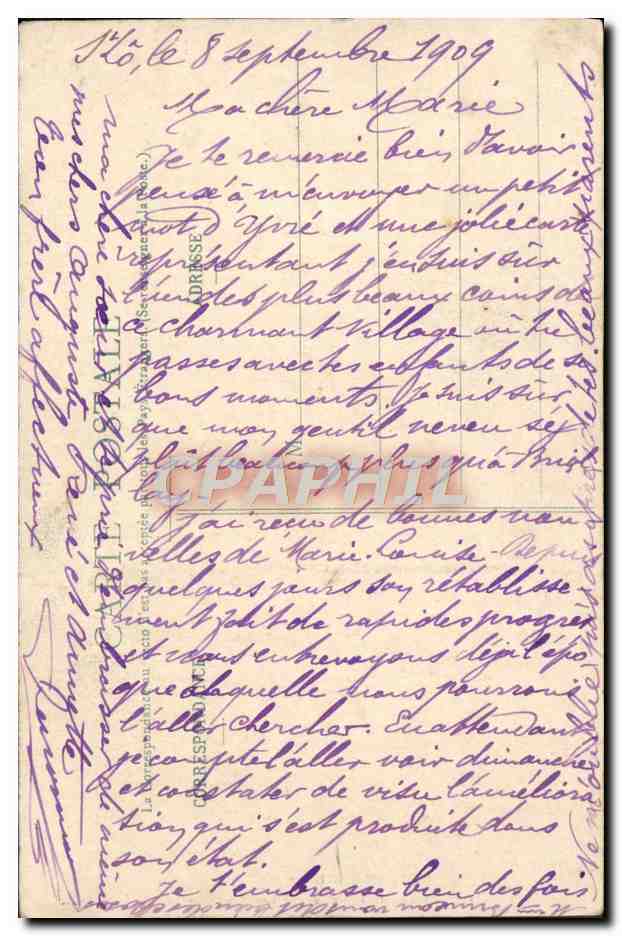 St Lô, le 8 septembre 1909
Ma chère Marie
Je te remercie bien d'avoir
pensé à m'envoyer un petit
mot d'Yvré et une jolie carte
représentant j'en suis sûr
l'un des plus beaux coins de
ce charmant village où tu
passes avec tes enfants de si
bons moments. Je suis sûr
que mon gentil neveu s'y
plait beaucoup plus qu'à
J'ai reçu de bonnes nou
velles de Marie-Louise. Depuis
quelques jours son rétablisse
ment fait de rapides progrès
et nous entrevoyons déjà l'épo
que à laquelle nous pourrons
l'aller chercher. En attendant
je compte l'aller voir dimanche
et constater de visu l'améliora
tion qui s'est produite dans
son état.
Je t'embrasse bien des fois
ma chère soeur et te prie d'embrasser de même
mes chers Auguste, René et Annette
Ton frère affectueux
beaux parents
CARTE POSTALE
La correspondance au recto n'est pas acceptée par tous les pays étrangers (Se renseigner à la Poste.)
CORRESPONDANCE
ADRESSE
M
CPAPHIL